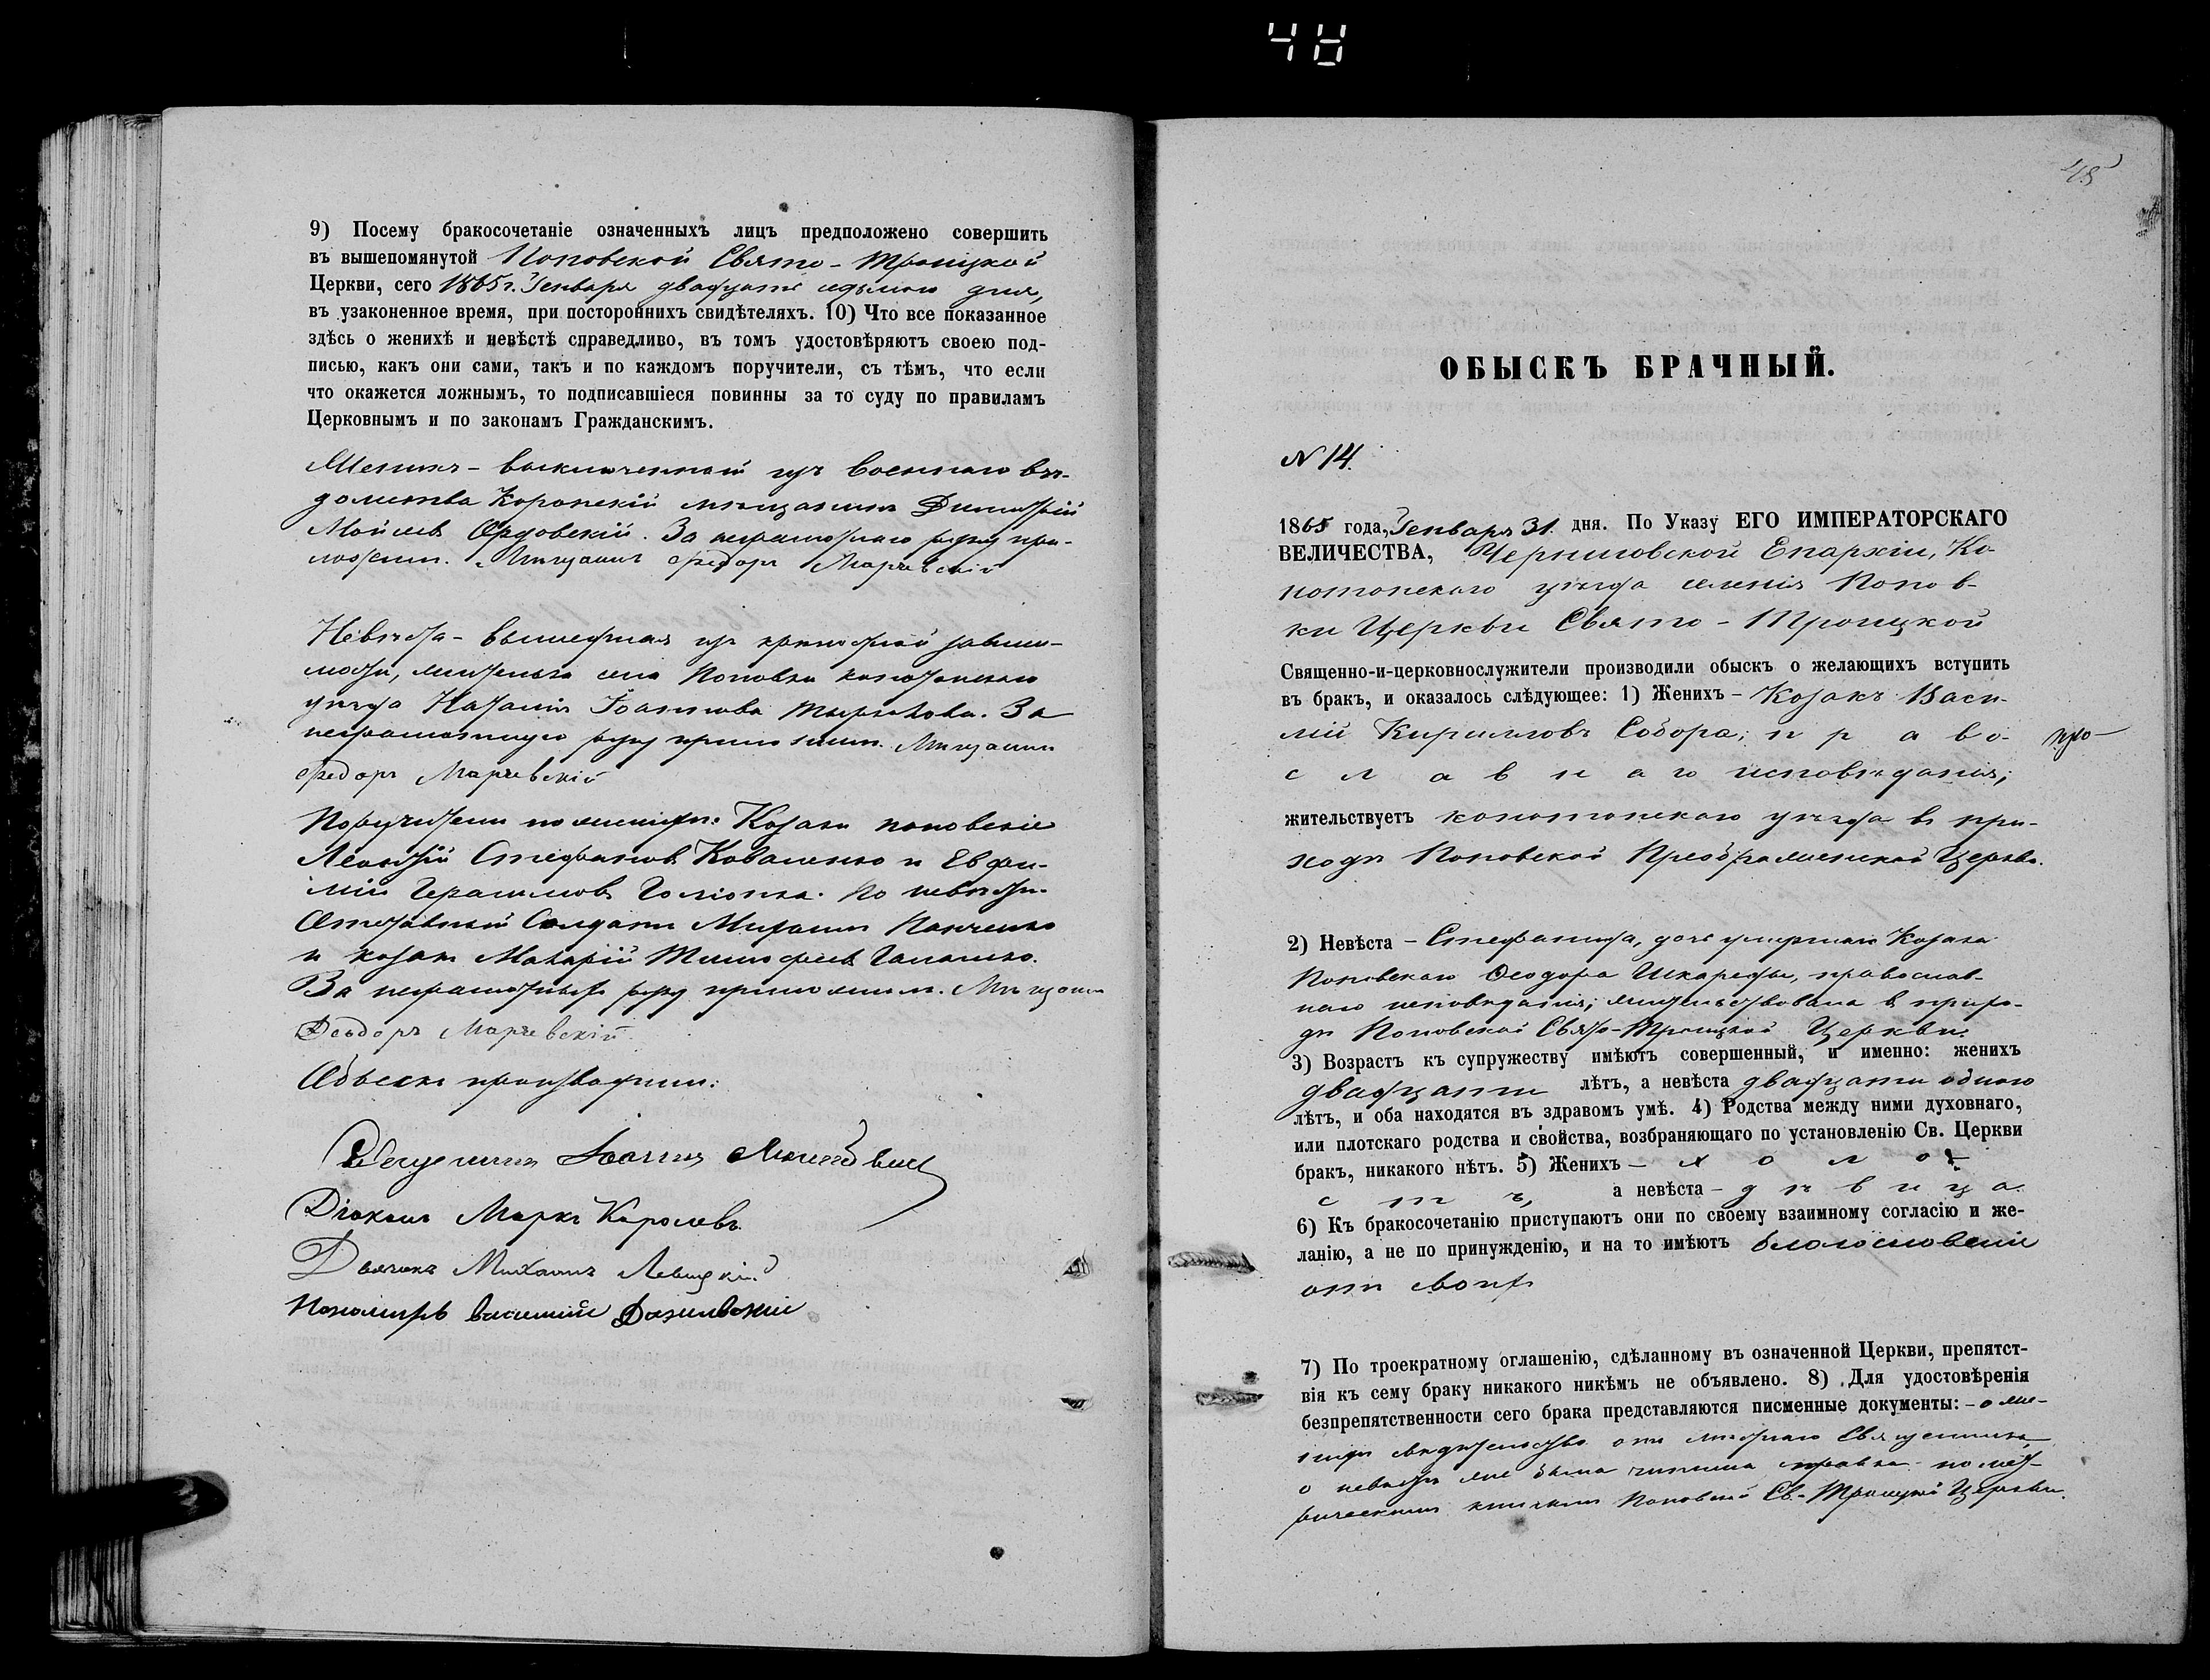 48
9) Посему бракосочетаніе означенныхъ лицъ предположено совершить
въ вышепомянутой Поповской Свято-Троицкой
Церкви, сего 1865 г. Генваря двадцать седьмаго дня,
въ узаконенное время, при постороннихъ свидѣтеляхъ. 10) Что все показанное
здѣсь о женихѣ и невѣстѣ справедливо, въ томъ удостовѣряютъ своею под-
писью, какъ они сами, такъ и по каждомъ поручители, съ тѣмъ, что если
что окажется ложнымъ, то подписавшіеся повинны за то суду по правиламъ
Церковнымъ и по законамъ Гражданскимъ.
Женихъ - выключенный изъ военнаго вѣ-
домства Коропскій мѣщанинъ Димитрій
Мойсеевъ Ордовскій. За неграмотнаго руку при-
ложилъ. Мѣщанинъ Федоръ
Невѣста - вышедшая изъ крѣпостной зависи-
мости, жителька села Поповки конотопскаго
уѣзда Наталія Іоаннова За
неграмотную руку приложилъ. Мѣщанинъ
Федоръ
Поручители по женихѣ: Козаки поповскіе
Леонтій Стефановъ Коваленко и Евфи-
мій Герасимовъ По невѣстѣ:
Отставный Солдатъ Панченко
и козакъ Макарій Тимофеевъ
За неграмотныхъ руку приложилъ. Мѣщанинъ
Ѳеодоръ
Обыскъ производили:
Священникъ Іоаннъ
Діаконъ Маркъ Королевъ.
Дьячокъ Михаилъ Левицкій
Пономарь Василій
48
ОБЫСКЪ БРАЧНЫЙ.
N 14.
1865 года, Генваря 31. дня. По Указу ЕГО ИМПЕРАТОРСКАГО
ВЕЛИЧЕСТВА, Черниговской Епархіи, Ко-
нотопскаго уѣзда селенія Попов-
ки Церкви Свято-Троицкой
Священно-и-церковнослужители производили обыскъ о желающихъ вступить
въ бракъ, и оказалось слѣдующее: 1) Женихъ - Козакъ Васи-
лій Кирилловъ Собора; право-
славнаго исповѣданія;
жительствуетъ конотопскаго уѣзда въ при-
ходѣ Поповской Преображенской Церкви.
2) Невѣста - Стефанида, дочь умершаго Козака
Поповскаго Ѳеодора Шкареды, православ-
наго исповѣданія; жительствовала въ прихо-
дѣ Поповской Свято-Троицкой Церкви.
3) Возрастъ къ супружеству имѣютъ совершенный, и именно: женихъ
двадцати лѣтъ, а невѣста двадцати одного
лѣтъ, и оба находятся въ здравомъ умѣ. 4) Родства между ними духовнаго,
или плотскаго родства и свойства, возбраняющаго по установленію Св. Церкви
бракъ, никакого нѣтъ. 5) Женихъ - холо-
стъ, а невѣста - дѣвица.
6) Къ бракосочетанію приступаютъ они по своему взаимному согласію и же-
ланію, а не по принужденію, и на то имѣютъ благословеніе
отъ своихъ
7) По троекратному оглашенію, сдѣланному въ означенной Церкви, препятст-
вія къ сему браку никакого никѣмъ не объявлено. 8) Для удостовѣренія
безпрепятственности сего брака представляются писменные документы: - о же-
нихѣ свидѣтельство отъ мѣстнаго Священника,
о невѣстѣ же была чинима справка по мет-
рическимъ книгамъ Поповской Св.-Троицкой Церкви.